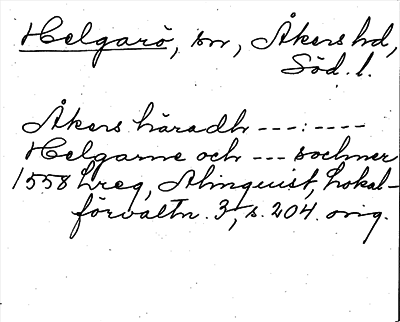 Helgarö, sn, Åkers hd,
Söd. l.
Åkers häradh ---:----
Helgarne och --- sochner
1558 Lreg, Almquist, Lokal-
förvaltn. 3, s. 204. orig.